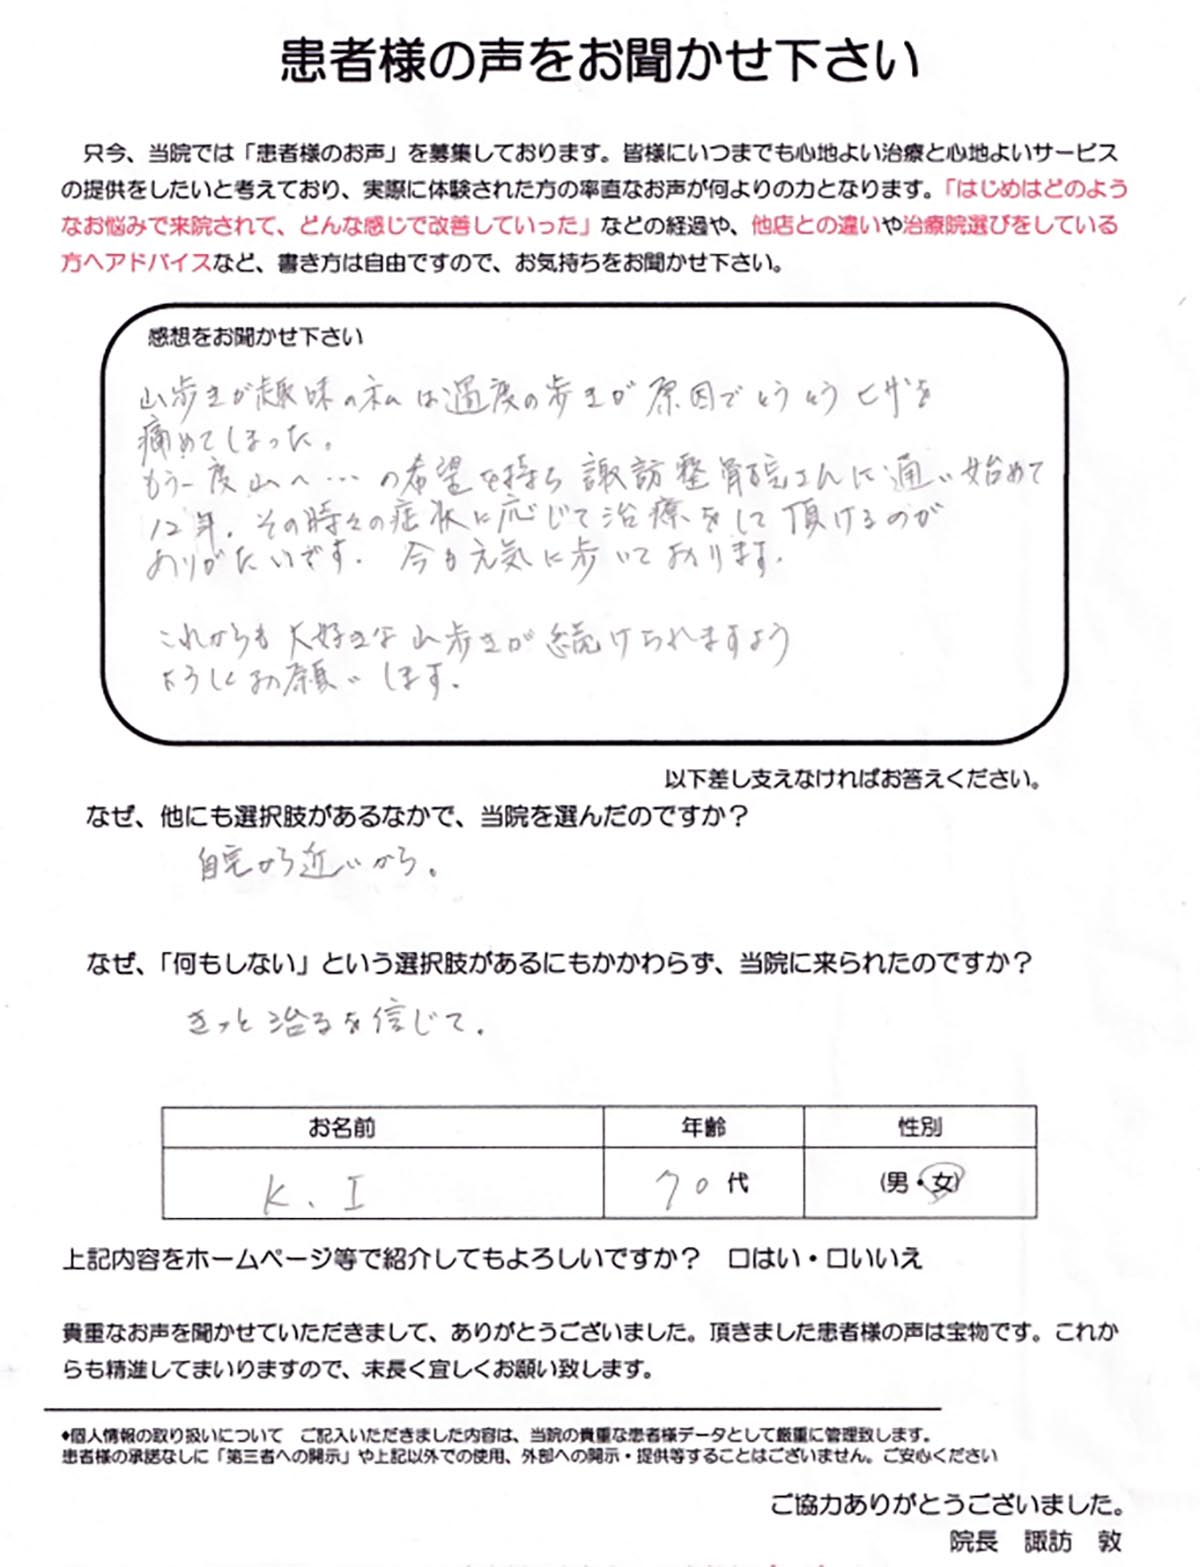 患者様の声をお聞かせ下さい
只今、当院では「患者様のお声」を募集しております。皆様にいつまでも心地よい治療と心地よいサービス
の提供をしたいと考えており、実際に体験された方の率直なお声が何よりの力となります。「はじめはどのよう
なお悩みで来院されて、どんな感じで改善していった」などの経過や、他店との違いや治療院選びをしている
方へアドバイスなど、書き方は自由ですので、お気持ちをお聞かせ下さい。
感想をお聞かせ下さい
山歩きが趣味の私は過度の歩きが原因でとうとうヒザを
痛めてしまった。
もう一度山へ…の希望を持ち諏訪整骨院さんに通い始めて
12年。その時々の症状に応じて治療をして頂けるのが
ありがたいです。今も元気に歩いております。
これからも大好きな山歩きが続けられますよう
よろしくお願いします。
以下差し支えなければお答えください。
なぜ、他にも選択肢があるなかで、当院を選んだのですか？
自宅から近いから。
なぜ、「何もしない」という選択肢があるにもかかわらず、当院に来られたのですか？
きっと治るを信じて。
お名前 年齢 性別
K.I 70代 (男・女)
上記内容をホームページ等で紹介してもよろしいですか？ 口はい・口いいえ
貴重なお声を聞かせていただきまして、ありがとうございました。頂きました患者様の声は宝物です。これか
らも精進してまいりますので、末長く宜しくお願い致します。
•個人情報の取り扱いについて ご記入いただきました内容は、当院の貴重な患者様データとして厳重に管理致します。
患者様の承諾なしに「第三者への開示」や上記以外での使用、外部への開示・提供等することはございません。ご安心ください
ご協力ありがとうございました。
院長 諏訪 敦